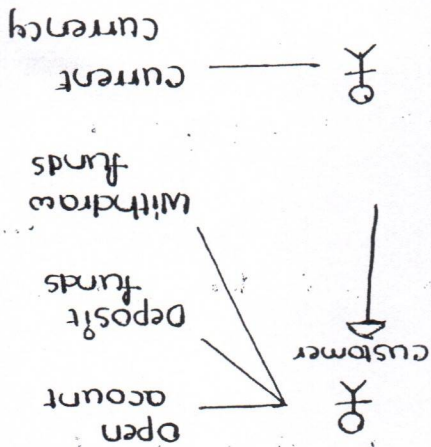 open
acount
customer
Deposit
funds
withdraw
funds
current
currency